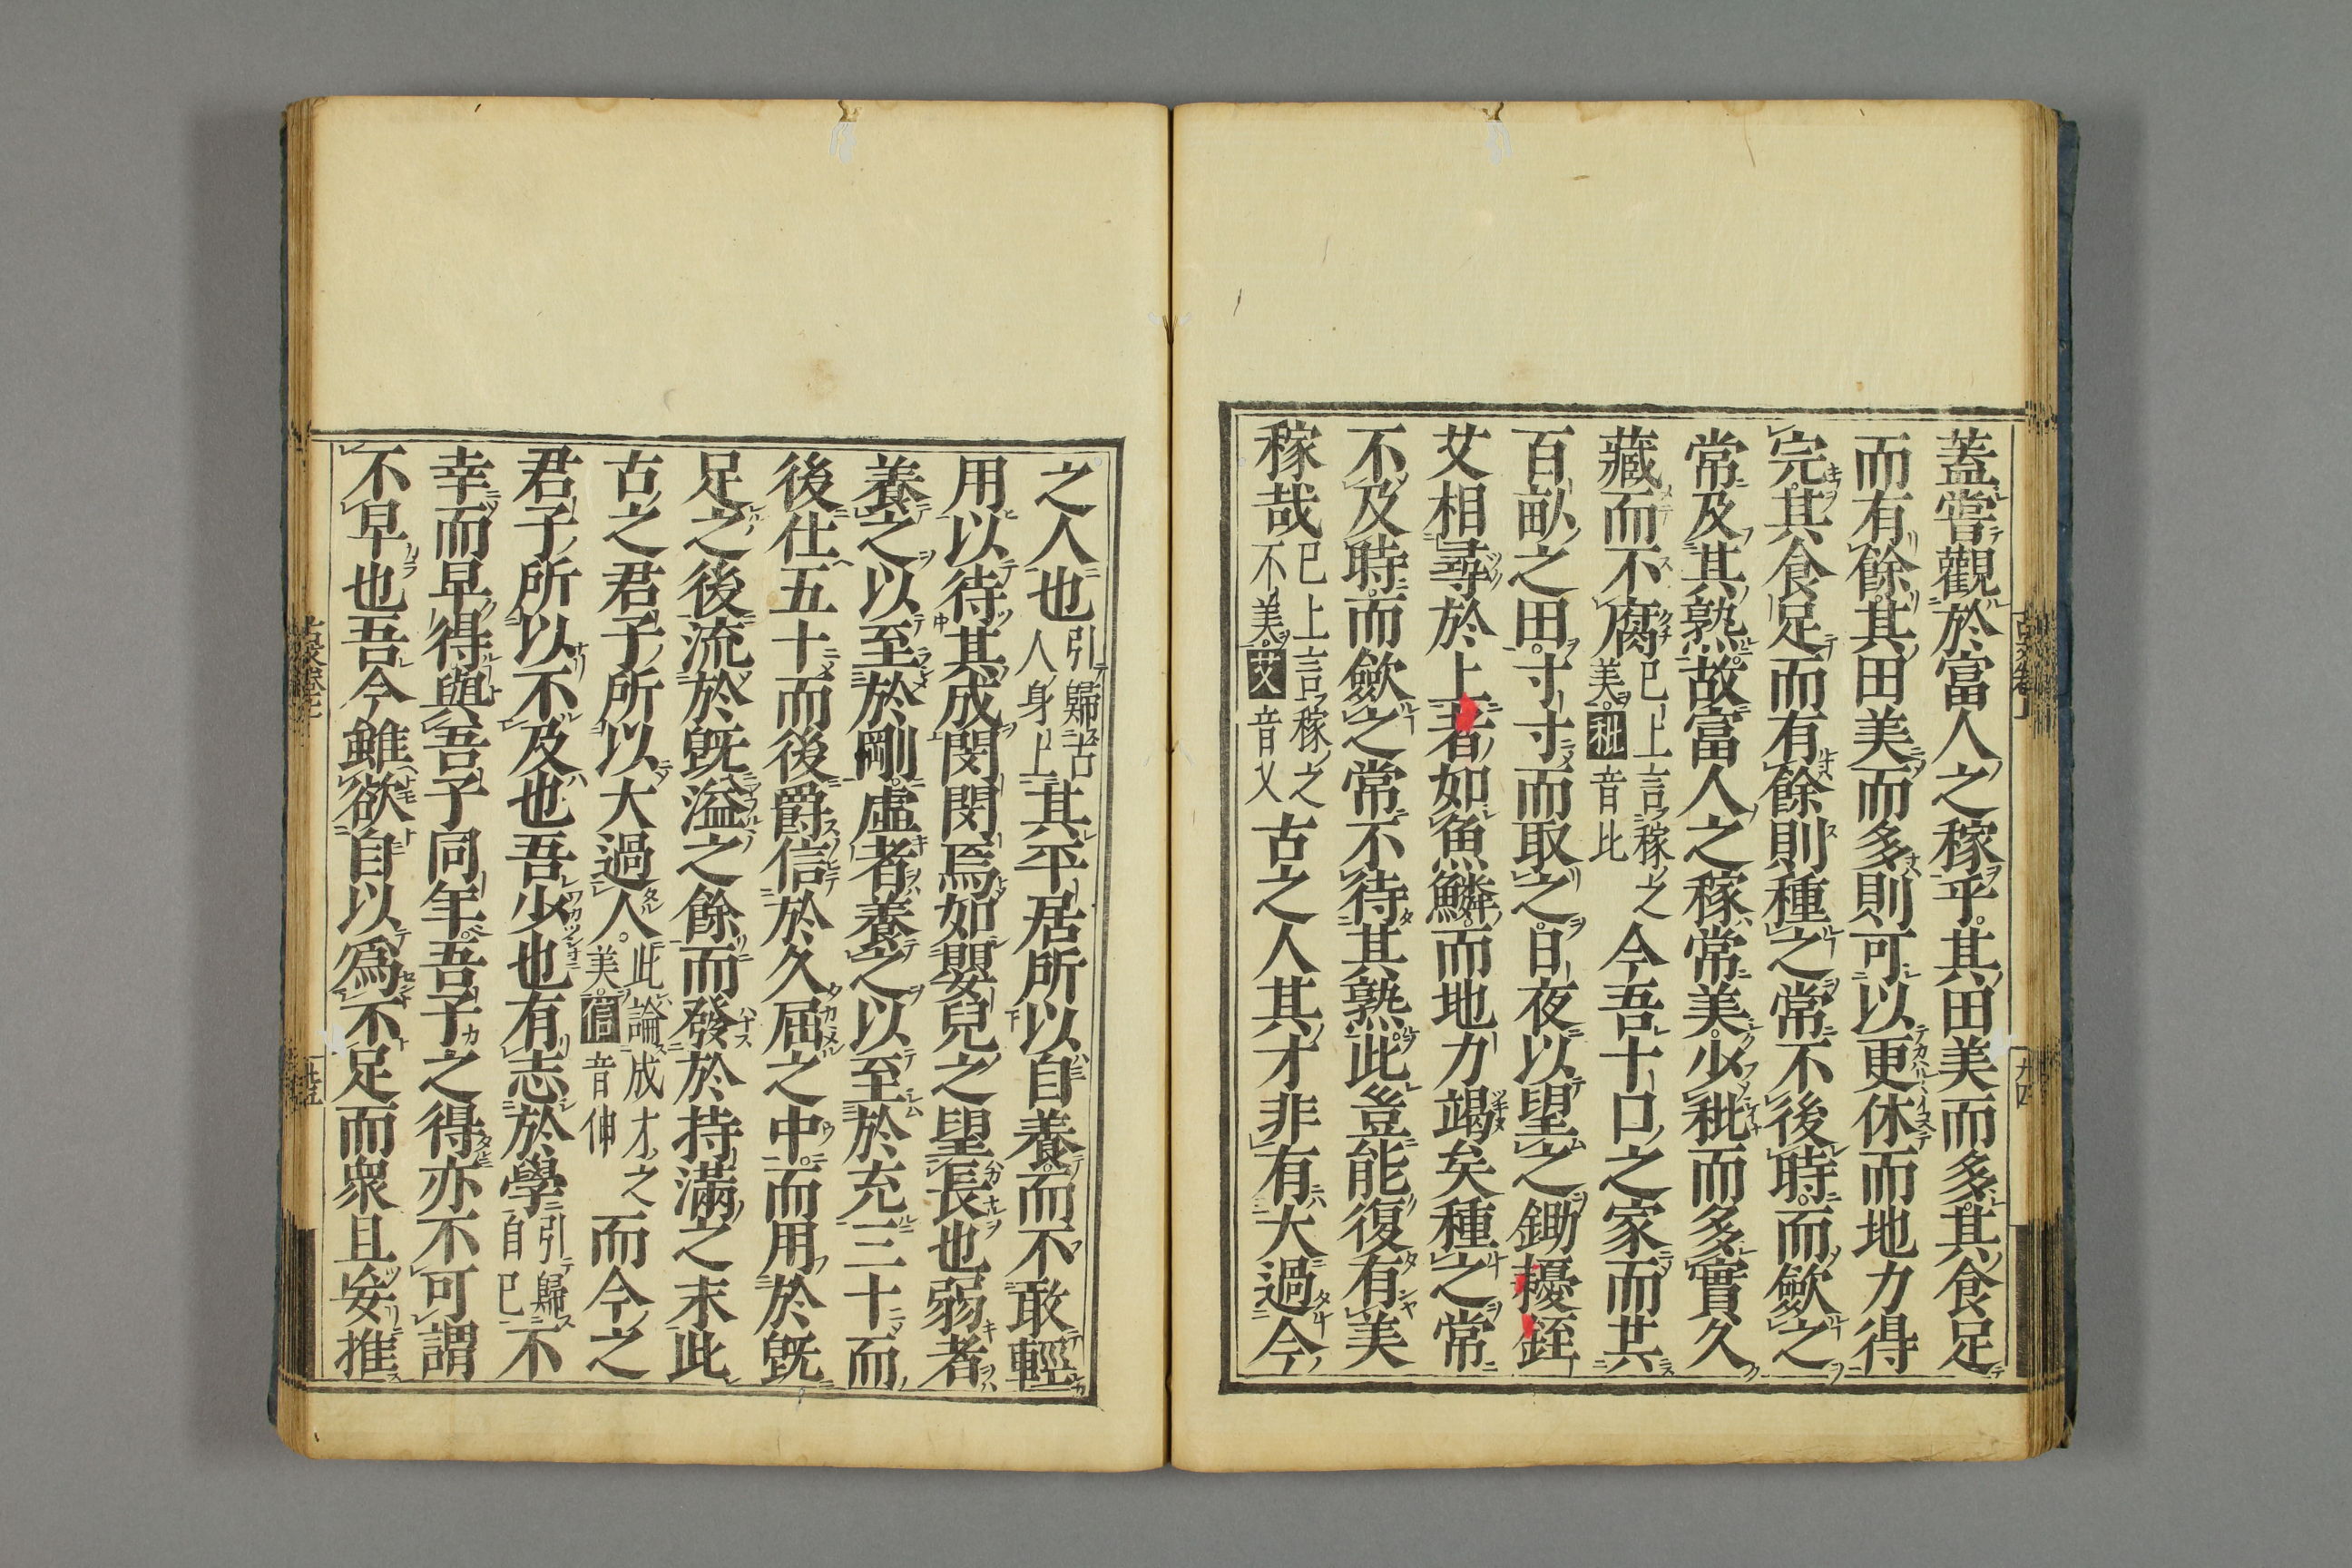 蓋嘗觀於富人之稼乎其田美而多其食足
而有餘其田美而多則可以更休而地力得
完其食足而有餘則種之常不後時而歛之
常及其熟故富人之稼常美少秕而多實久
藏而不腐已上言稼之美秕音比今吾十口之家而共
百畝之田寸寸而取之日夜以望之鋤耰銍
艾相尋於上者如魚鱗而地力竭矣種之常
不及時而歛之常不待其熟此豈能復有美
稼哉已上言稼之不美艾音乂古之人其才非有大過今
之人也引歸古人身上其平居所以自養而不敢輕
用以待其成閔閔焉如嬰兒之望長也弱者
養之以至於剛虛者養之以至於充三十而
後仕五十而後爵信於久屈之中而用於旣
足之後流於旣溢之餘而發於持滿之末此
古之君子所以大過人此論成才之美信音伸而今之
君子所以不及也吾少也有志於學引歸自己不
幸而早得與吾子同年吾子之得亦不可謂
不早也吾今雖欲自以爲不足而衆且妄推